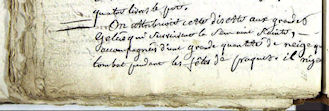 quatre livres le pot.
On attribuoit cette disette aux grandes
Gelées qui survinrent la semaine Sainte,
accompagnées d'une grande quantité de neige qui
tombat pendant les fêtes de pasques. il nige